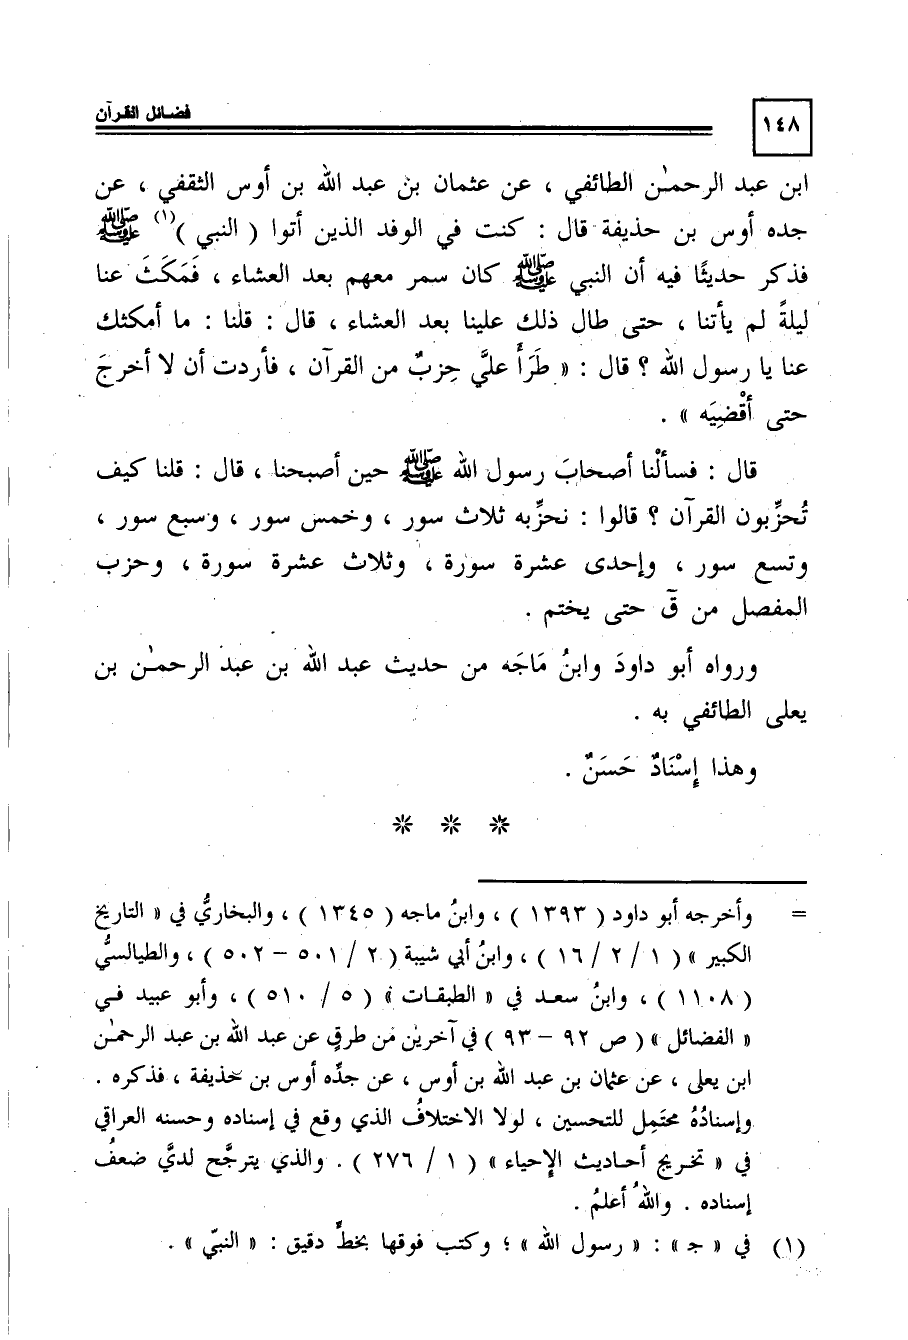 فضائل القرآن
١٤٨
ابن عبد الرحمٰن الطائفي ، عن عثمان بن عبد الله بن أوس الثقفي ، عن
جده أوس بن حذيفة قال : كنت في الوفد الذين أتوا ( النبي )(١) ﷺ
فذكر حديثًا فيه أن النبي ﷺ كان سمر معهم بعد العشاء ، فَمَكَثَ عنا
ليلةً لم يأتنا ، حتى طال ذلك علينا بعد العشاء ، قال : قلنا : ما أمكثك
عنا يا رسول الله ؟ قال : « طَرَأَ عليَّ حِزبٌ من القرآن ، فأردت أن لا أخرجَ
حتى أقْضِيَه » .
قال : فسألْنا أصحابَ رسول الله ﷺ حين أصبحنا ، قال : قلنا كيف
تُحزِّبون القرآن ؟ قالوا : نحزِّبه ثلاث سور ، وخمس سور ، وسبع سور ،
وتسع سور ، وإحدى عشرة سورة ، وثلاث عشرة سورة ، وحزب
المفصل من قٓ حتى يختم .
ورواه أبو داودَ وابنُ مَاجَه من حديث عبد الله بن عبد الرحمٰن بن
يعلى الطائفي به .
وهذا إِسْنَادٌ حَسَنٌ .
* * *
= وأخرجه أبو داود ( ١٣٩٣ ) ، وابنُ ماجه ( ١٣٤٥ ) ، والبخاريُّ في « التاريخ
الكبير » ( ١ / ٢ / ١٦ ) ، وابنُ أبي شيبة ( ٢ / ٥٠١ – ٥٠٢ ) ، والطيالسيُّ
( ١١٠٨ ) ، وابنُ سعد في « الطبقات » ( ٥ / ٥١٠ ) ، وأبو عبيد في
« الفضائل » ( ص ٩٢ – ٩٣ ) في آخرين من طرقٍ عن عبد الله بن عبد الرحمٰن
ابن يعلى ، عن عثمان بن عبد الله بن أوس ، عن جدِّه أوس بن حذيفة ، فذكره .
وإسنادُهُ محتَمِل للتحسين ، لولا الاختلافُ الذي وقع في إسناده وحسنه العراقي
في « تخريج أحاديث الإحياء » ( ١ / ٢٧٦ ) . والذي يترجَّح لديَّ ضعفُ
إسناده . واللهُ أعلمُ .
(١) في « جـ » : « رسول الله » ؛ وكتب فوقها بخطٍّ دقيق : « النبيّ » .